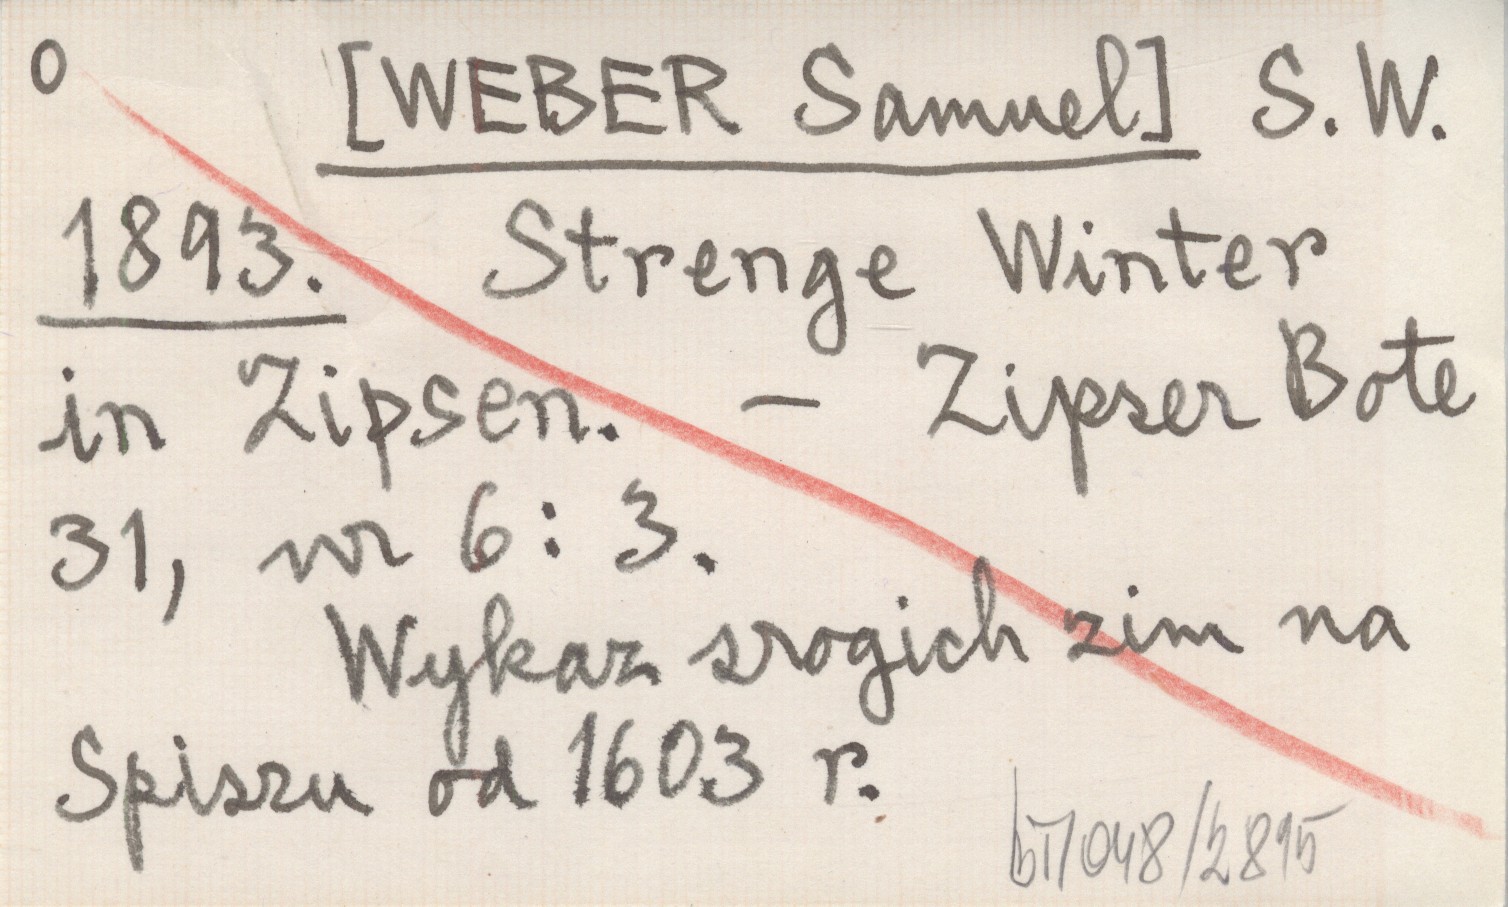 0 [WEBER Samuel] S. W.
1893. Strenge Winter
in Zipsen. – Zipser Bote
31, nr 6: 3.
Wykaz srogich zim na
Spiszu od 1603 r.
bT/048/2815